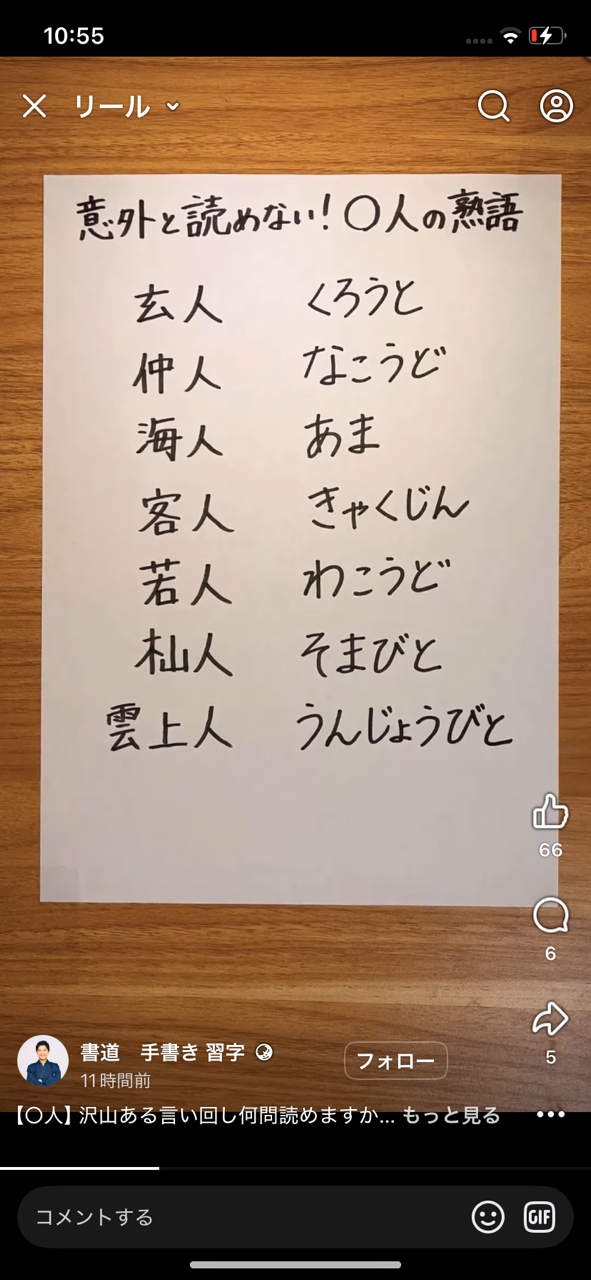 10:55
リール
意外と読めない!〇人の熟語
玄人 くろうと
仲人 なこうど
海人 あま
客人 きゃくじん
若人 わこうど
杣人 そまびと
雲上人 うんじょうびと
66
6
5
書道 手書き 習字
11時間前
フォロー
【〇人】沢山ある言い回し何問読めますか... もっと見る
コメントする
GIF